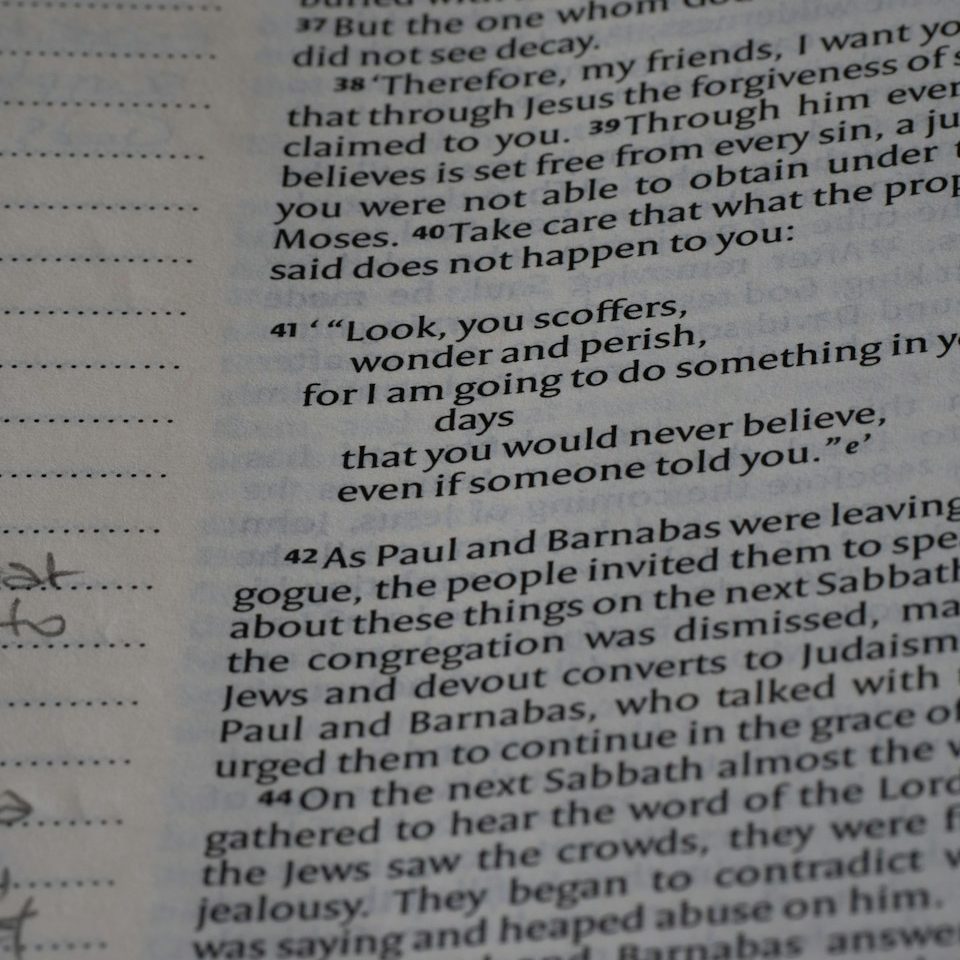 37 But the one whom God
did not see decay.
38 ‘Therefore, my friends, I want
that through Jesus the forgiveness of
claimed to you. 39 Through him
believes is set free from every sin, a
you were not able to obtain under
Moses. 40 Take care that what the
said does not happen to you:
41 ‘ “Look, you scoffers,
wonder and perish,
for I am going to do something in
days
that you would never believe,
even if someone told you.” e’
42 As Paul and Barnabas were leaving
gogue, the people invited them to
about these things on the next Sabbath
the congregation was dismissed,
Jews and devout converts to Judaism
Paul and Barnabas, who talked with
urged them to continue in the grace of
44 On the next Sabbath almost the
gathered to hear the word of the Lord
the Jews saw the crowds, they were
jealousy. They began to contradict
was saying and heaped abuse on him.
Barnabas
to